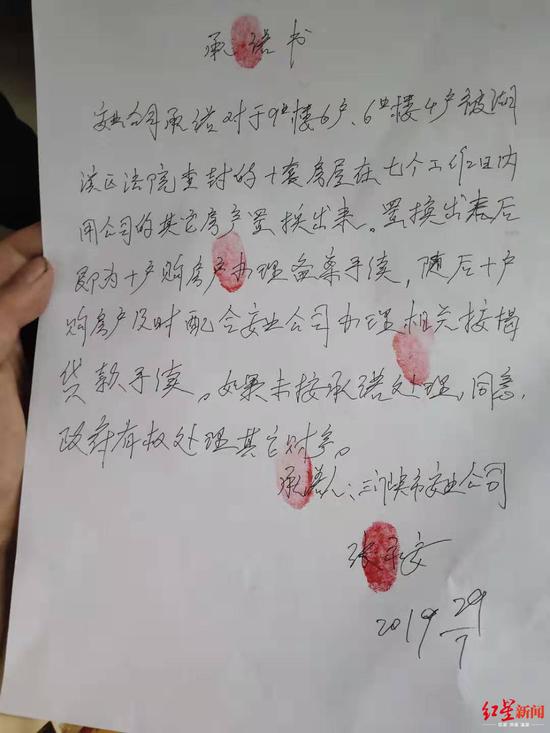 承诺书
安业公司承诺对于9#楼6户、6#楼4户被湖
滨区法院查封的十套房屋在七个工作日内
用公司的其它房产置换出来。置换出来后
即为十户购房户办理备案手续，随后十户
购房户及时配合安业公司办理相关按揭
贷款手续。如果未按承诺处理，同意，
政府有权处理其它财产。
承诺人：三门峡市安业公司
张平安
2019 29/7
红星新闻